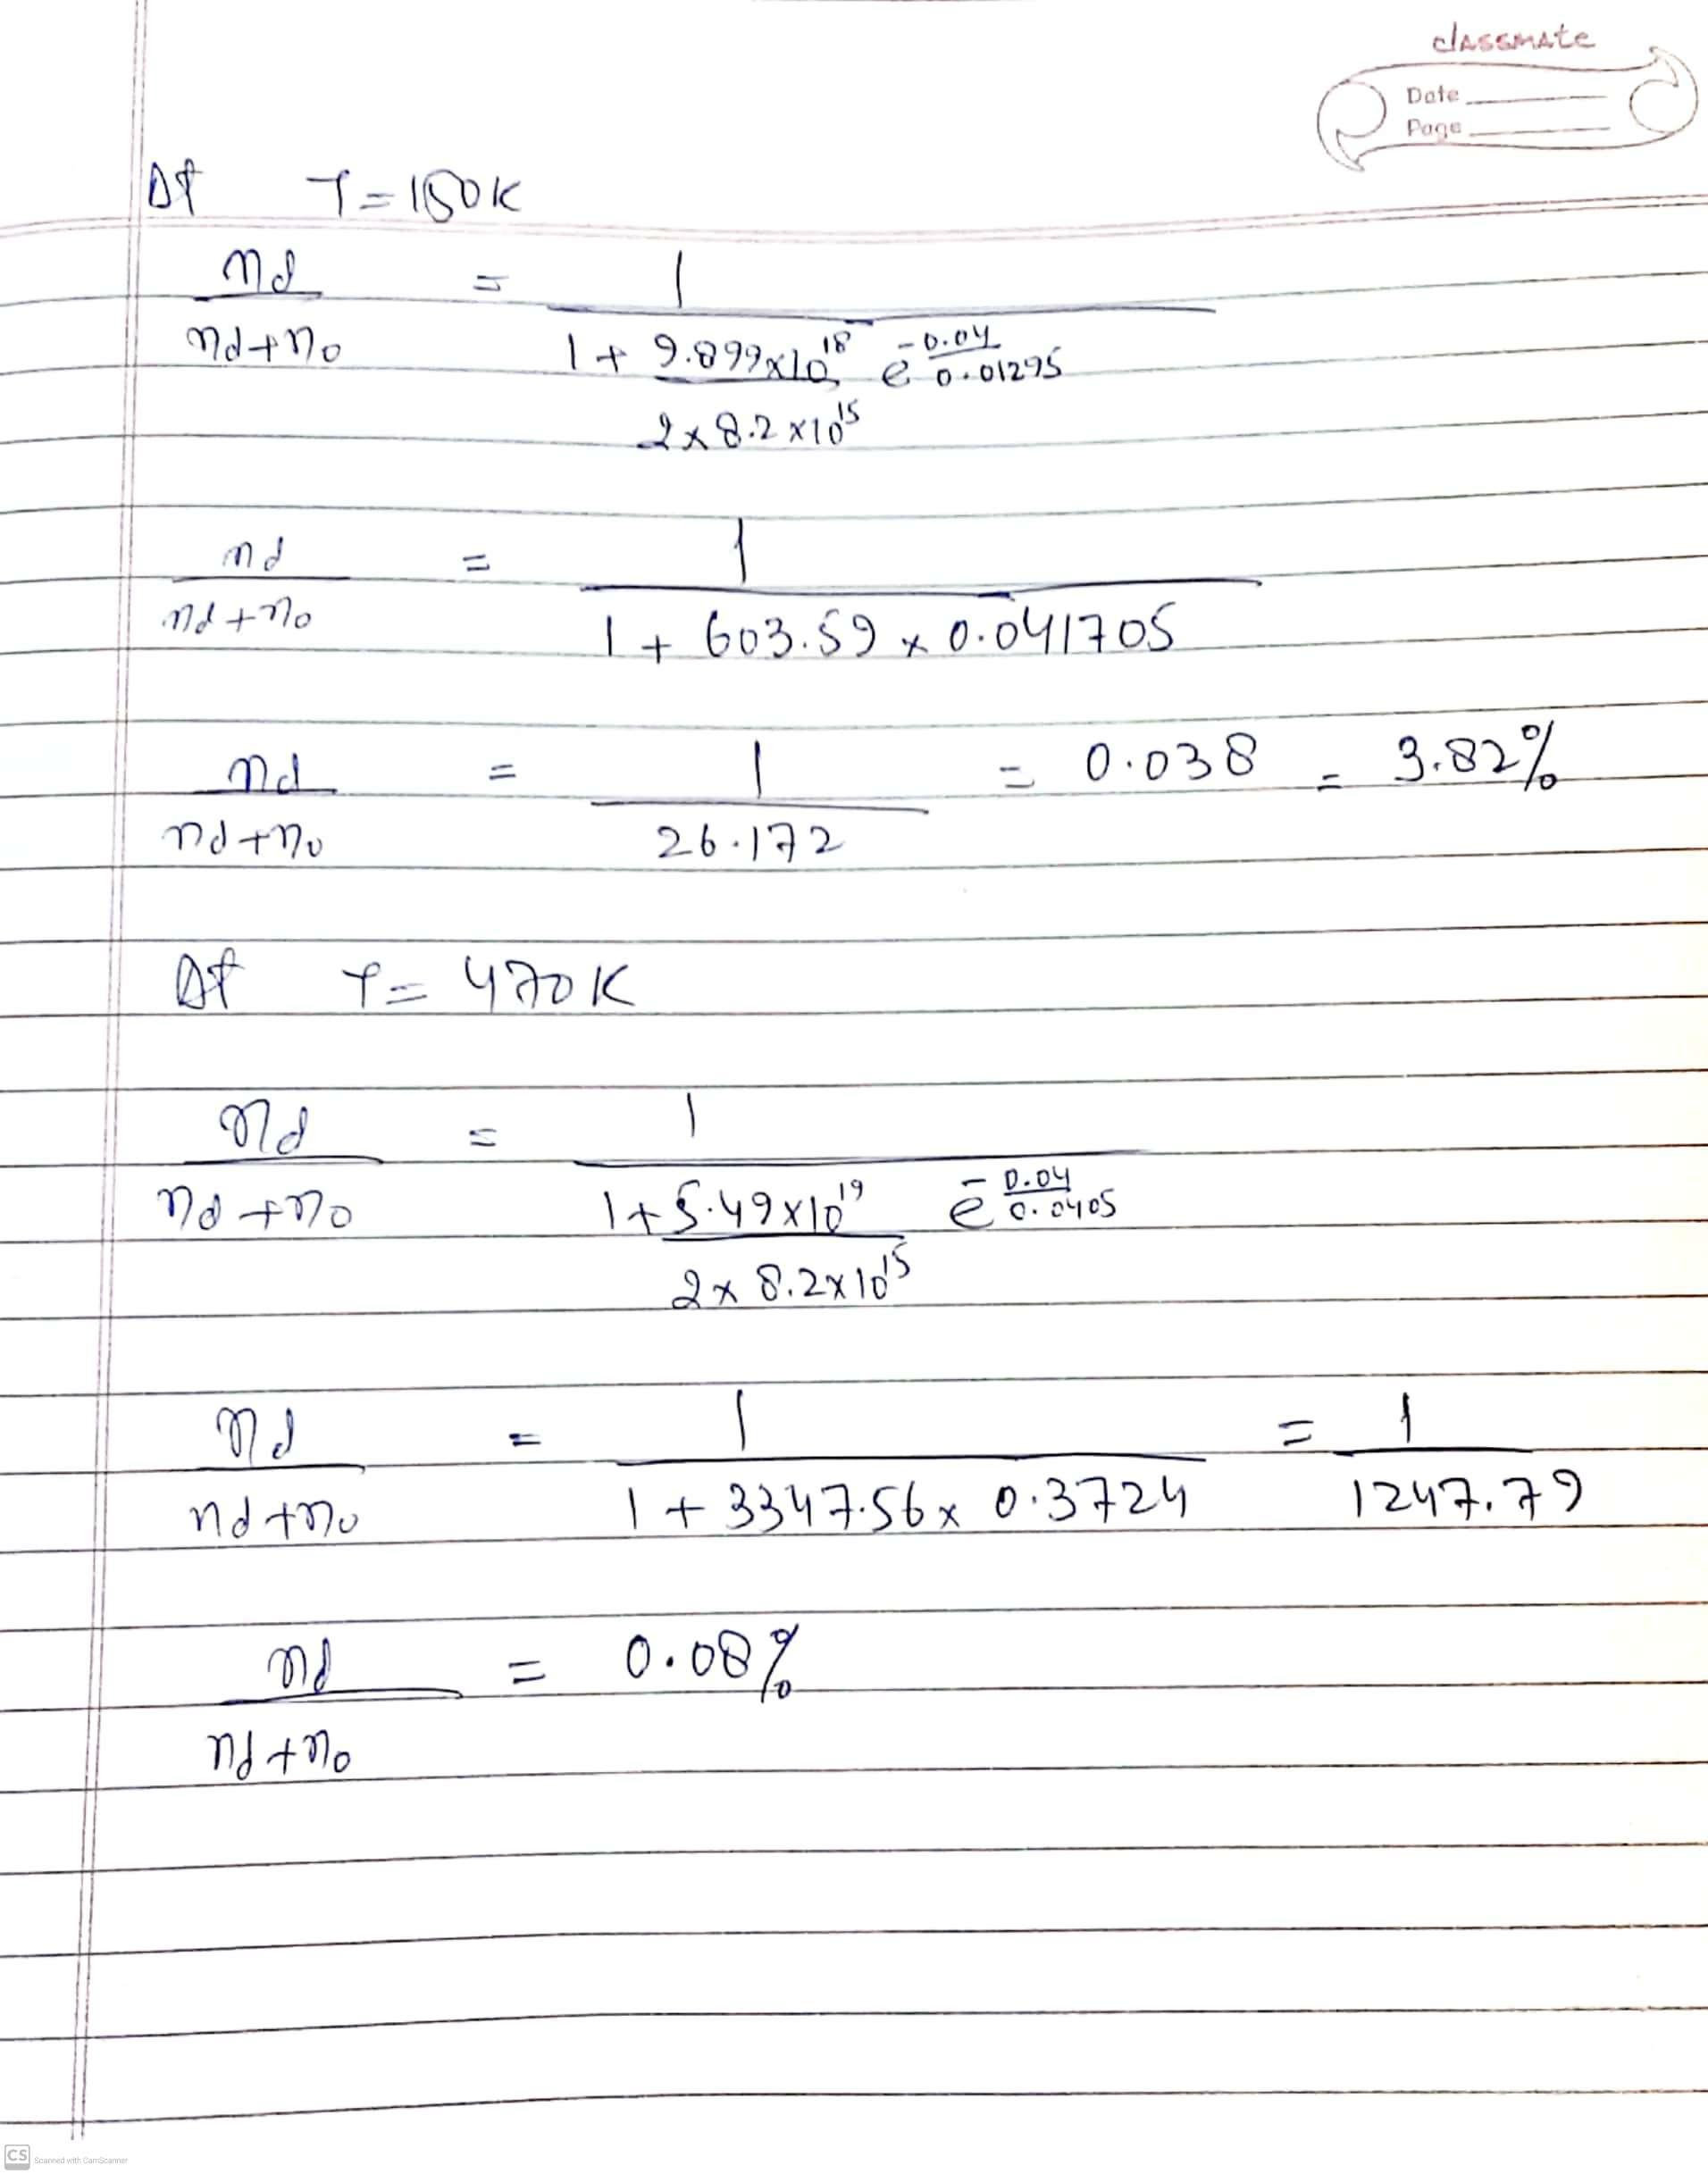 classmate
Date
Page
At T = 150K
nd / nd+n0 = 1 / 1 + 9.899x10^18 / 2x8.2x10^15 e^-0.04/0.01295
nd / nd+n0 = 1 / 1 + 603.59 x 0.041705
nd / nd+n0 = 1 / 26.172 = 0.038 = 3.82%
At T = 470K
nd / nd+n0 = 1 / 1+5.49x10^19 / 2x8.2x10^15 e^-0.04/0.0405
nd / nd+n0 = 1 / 1 + 3347.56x 0.3724 = 1 / 1247.79
nd / nd+n0 = 0.08%
CS Scanned with CamScanner